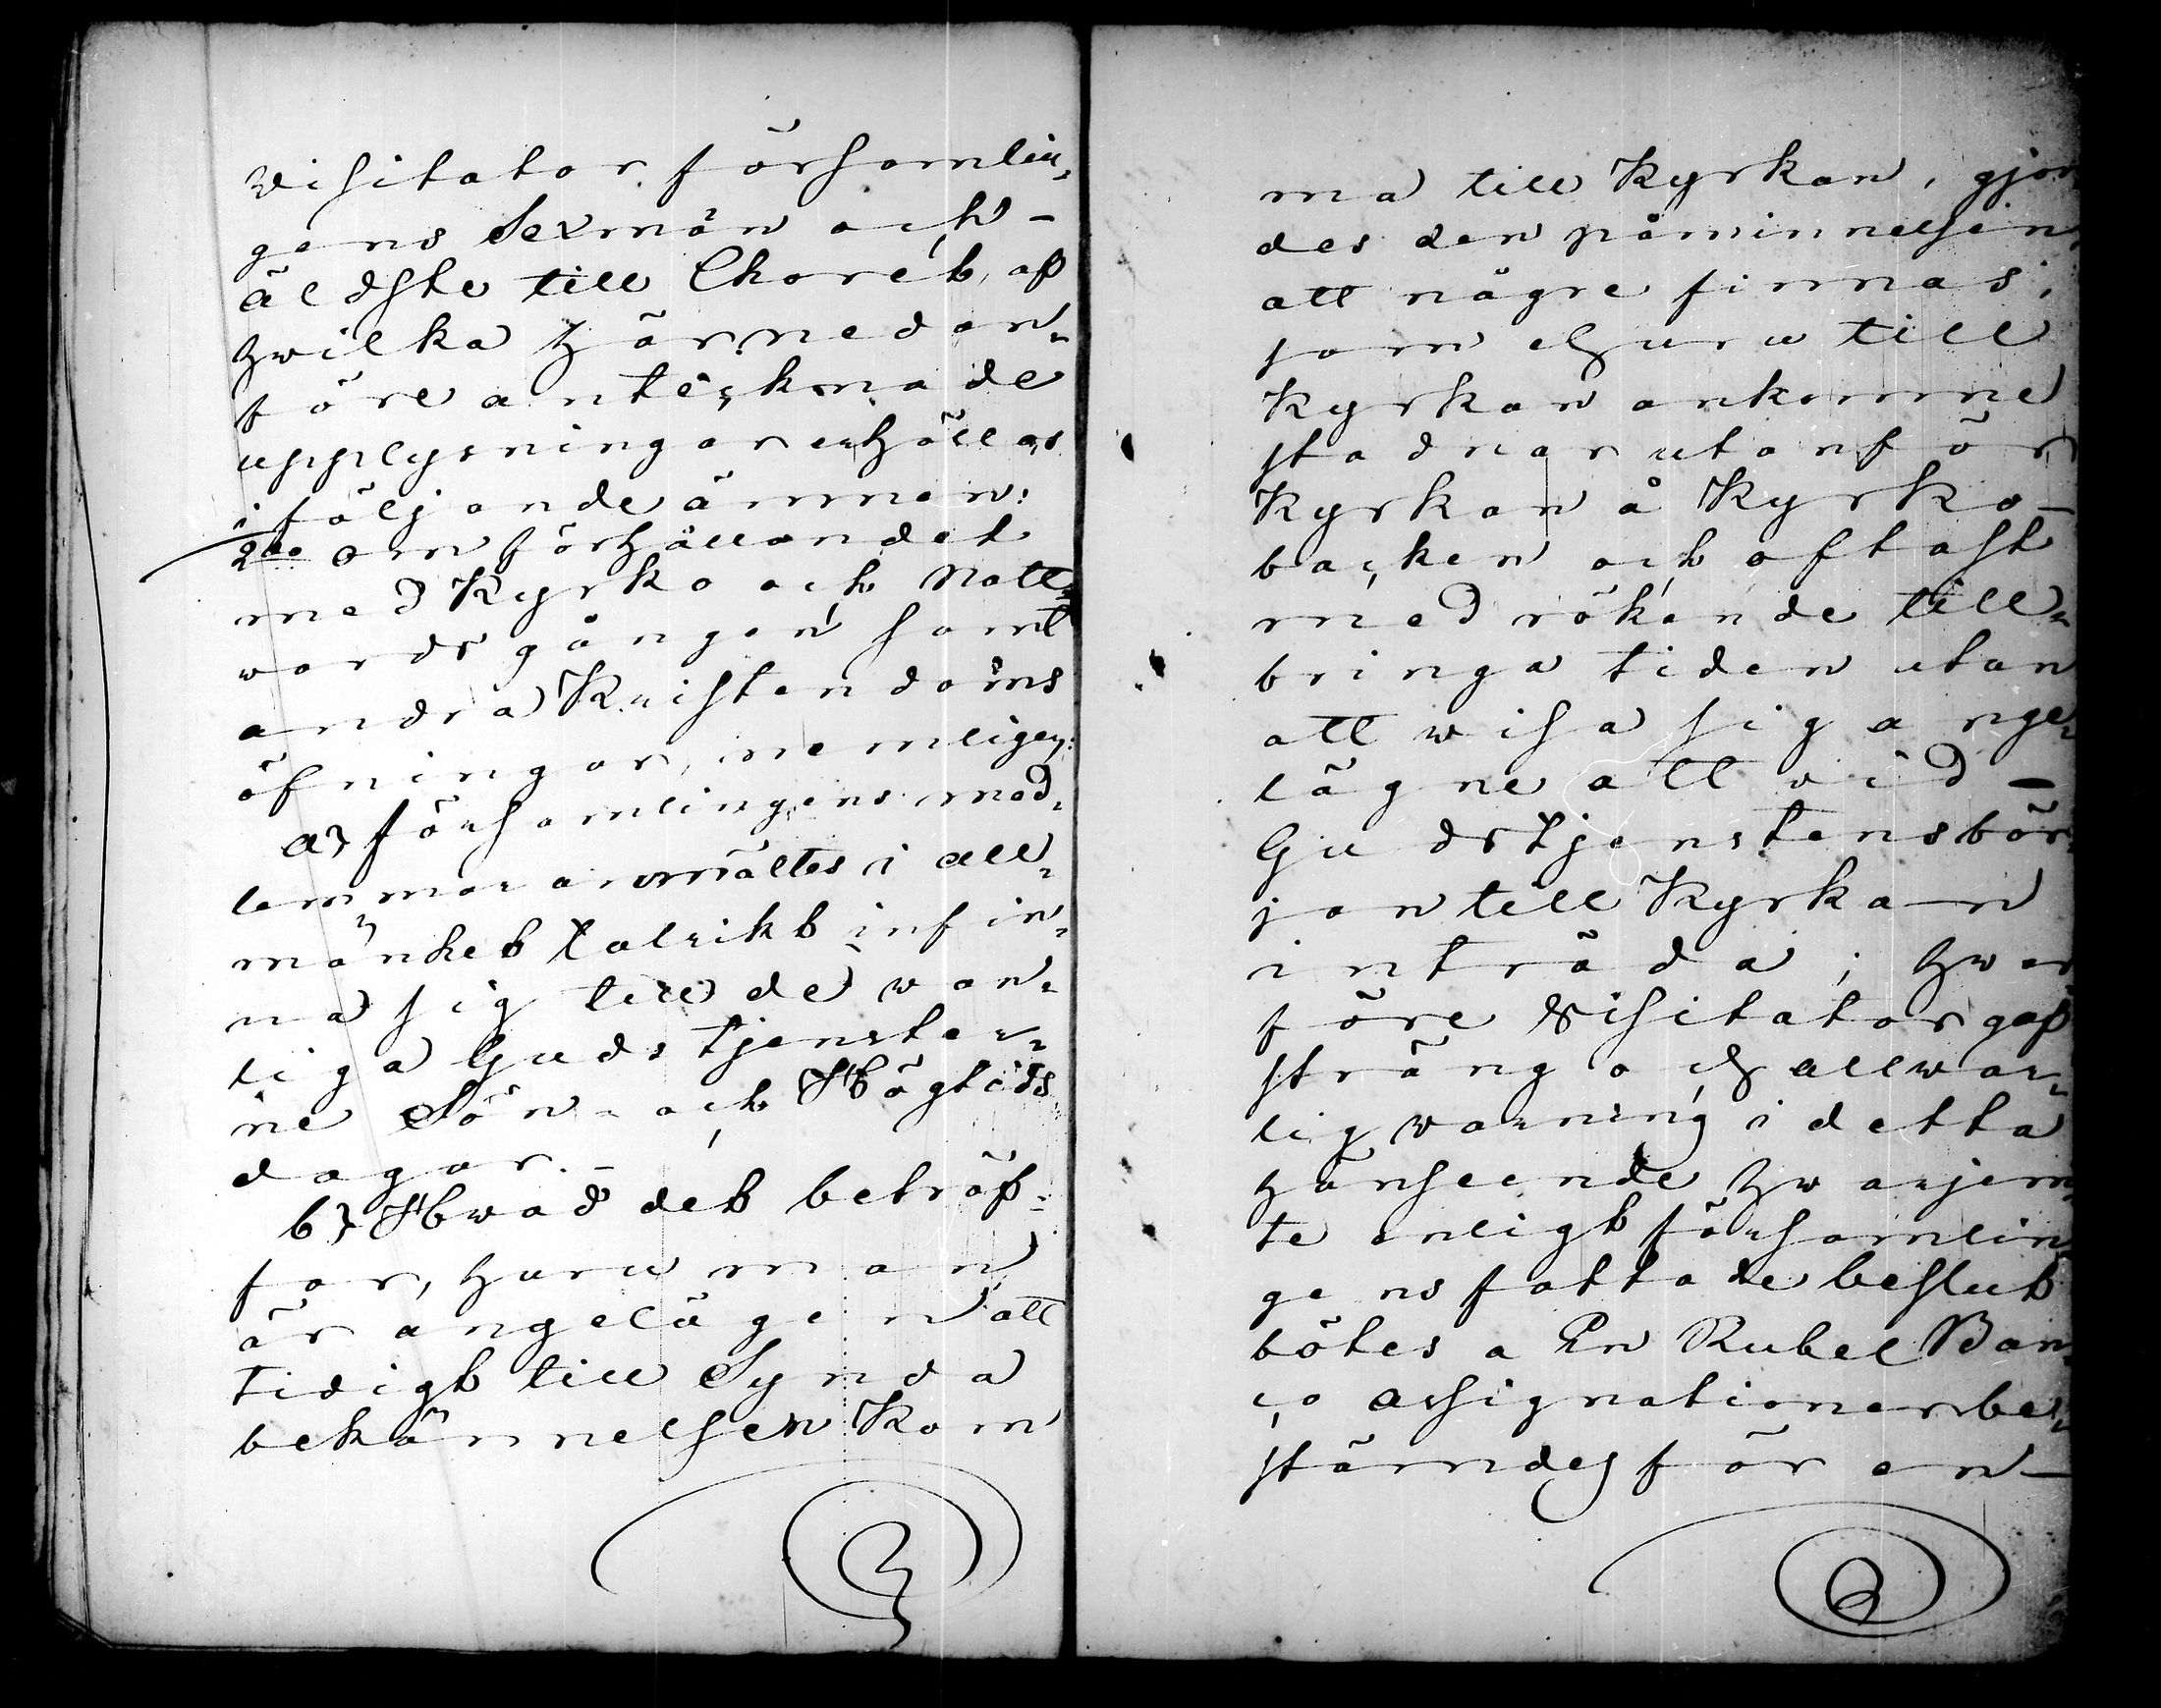 Visitator församlin-
gens Sexmän och –
äldste till Choret, af
hwilka härnedan-
före antecknade
upplysningar erhöllos
i följande ämnen:
2do om förhållandet
med Kyrko och Natt-
wards gången samt
andra Kristendoms
öfningar, nemligen:
a) församlingens med-
lemmar anmältes i all-
mänhet talrikt infin-
na sig till de wan-
liga Gudstjenster-
ne Sön- och Högtids
dagar. –
b) Hwad det beträf-
far, huru man
är angelägen att
tidigt till Synda
bekännelsen Kom
ma till Kyrkan, gjor-
des den påminnelsen,
att någre finnas,
som ehuru till
Kyrkan ankomne
stadnar utanför
Kyrkan å Kyrko-
backen och oftast
med rökande till-
bringa tiden utan
att wisa sig ange-
lägne att wid –
Gudstjenstens bör-
jan till Kyrkan
inträda; hwar-
före Visitator gaf
sträng och allwar-
lig warning i detta
hänseende hwarjem-
te enligt församlin-
gens fattade beslut
bötes a En Rubel Ban-
co Assignationer be-
stämdes för en –